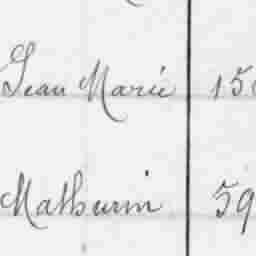 Jean Marie 15
Mathurin 59